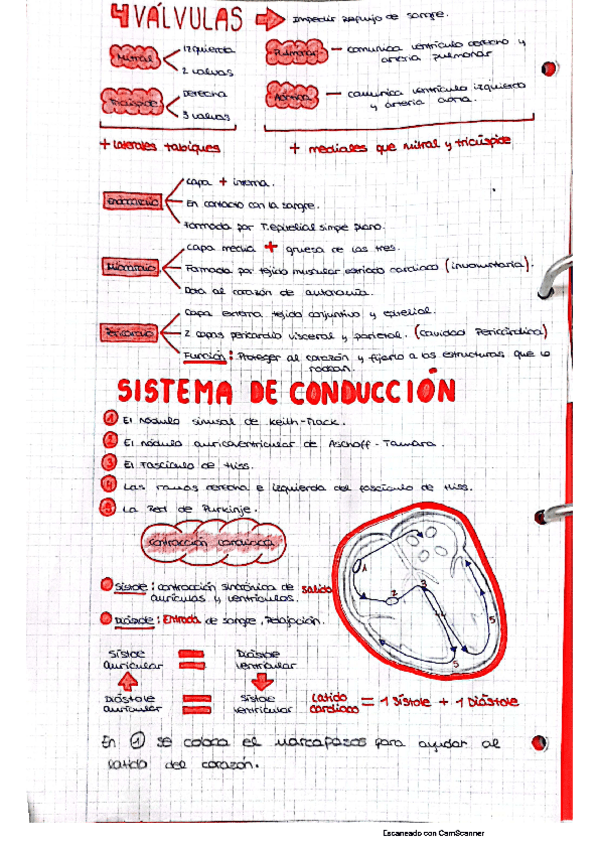 4 VÁLVULAS → Impedir reflujo de sangre.
Mitral
Izquierda
2 valvas
Tricúspide
Derecha
3 valvas
+ laterales tabiques
Pulmonar — comunica ventrículo derecho y
arteria pulmonar
Aórtica — comunica ventrículo izquierdo
y arteria aorta.
+ mediales que mitral y tricúspide
Endocardio
Capa + interna.
En contacto con la sangre.
Formada por T. epitelial simple plano.
Miocardio
Capa media + gruesa de las tres.
Formada por tejido muscular estriado cardiaco (involuntaria).
Dota al corazón de autonomía.
Pericardio
Capa externa tejido conjuntivo y epitelial.
2 capas pericardio visceral y parietal. (Cavidad Pericárdica)
Función: Proteger al corazón y fijarlo a las estructuras que lo
rodean.
SISTEMA DE CONDUCCIÓN
1 El nódulo sinusal de Keith-Flack.
2 El nódulo auriculoventricular de Aschoff-Tawara.
3 El Fascículo de Hiss.
4 Las ramas derecha e izquierda del fascículo de Hiss.
5 La Red de Purkinje.
Contracción cardiaca
Sístole: contracción sincrónica de salida
aurículas y ventrículos.
Diástole: Entrada de sangre, Relajación.
1
2
3
4
5
5
Sístole auricular = Diástole ventricular
Diástole auricular = Sístole ventricular
Latido cardiaco = 1 Sístole + 1 Diástole
En 1 se coloca el marcapasos para ayudar al
latido del corazón.
Escaneado con CamScanner